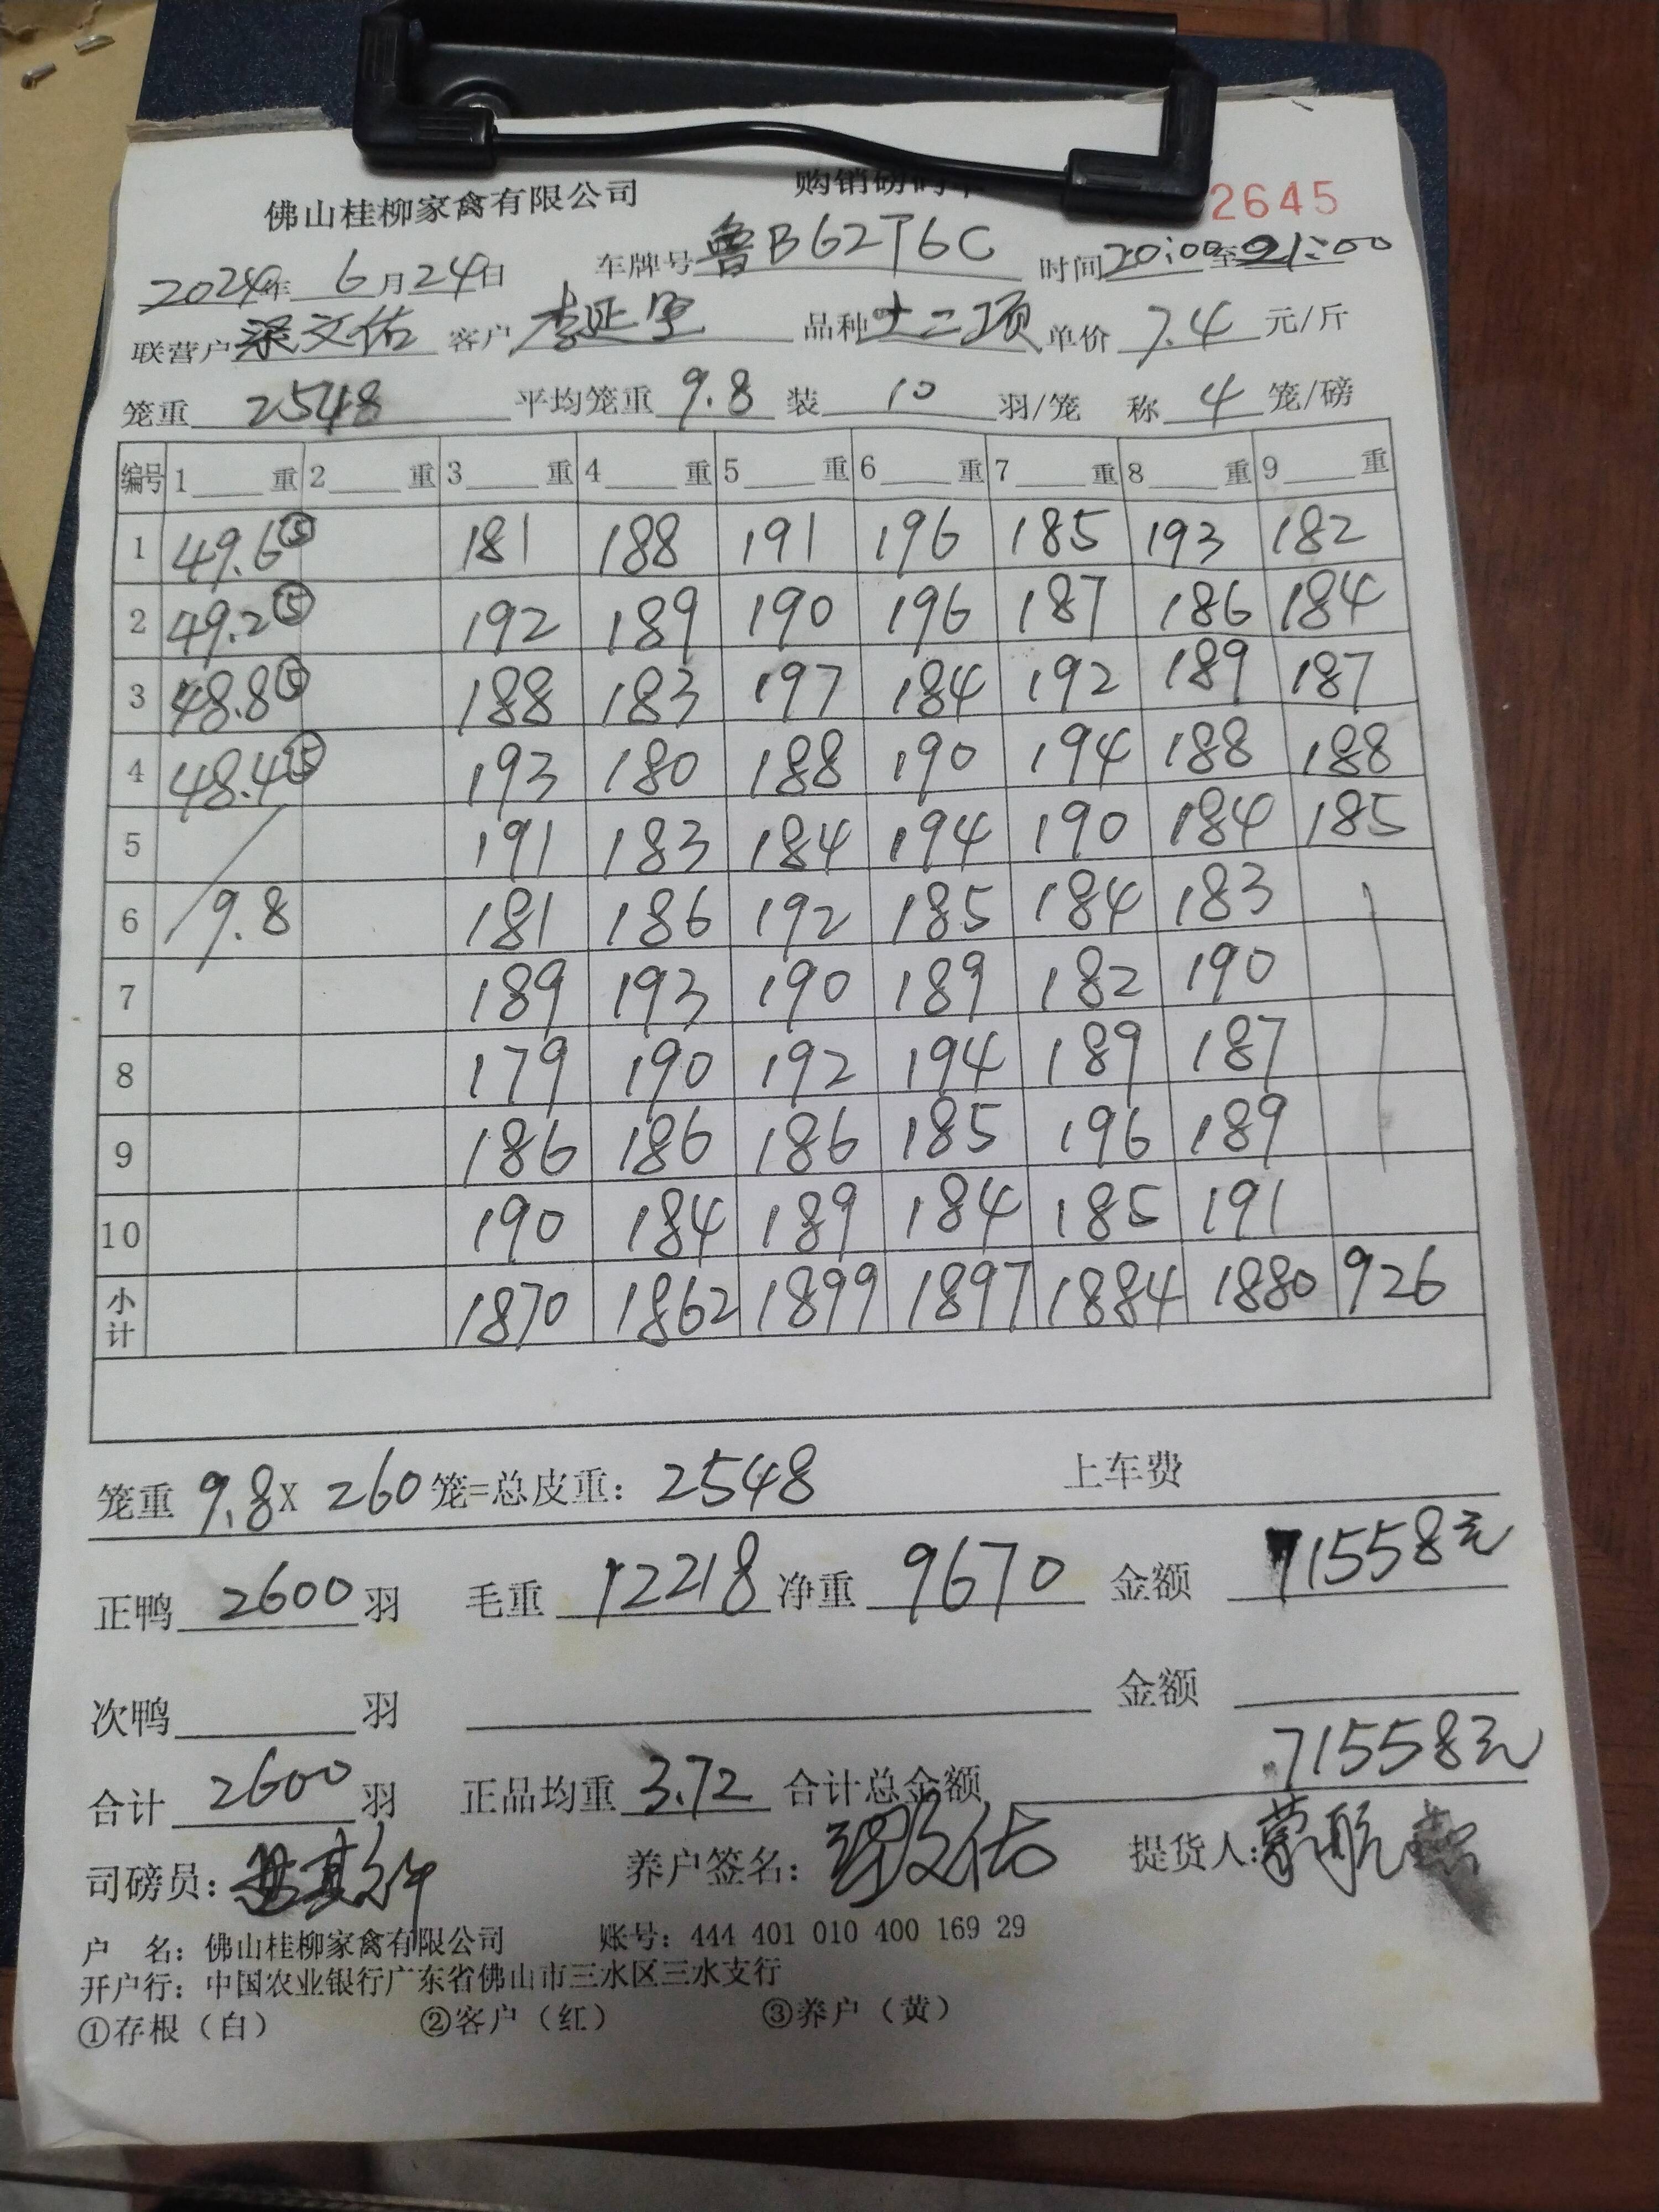 佛山桂柳家禽有限公司 购销磅码单 2645
2024年 6月24日 车牌号 鲁B62T6C 时间20:00至21:00
联营户 梁文佑 客户 李延军 品种 十二项 单价 7.4 元/斤
笼重 2548 平均笼重 9.8 装 10 羽/笼 称 4 笼/磅
编号 1 重 2 重 3 重 4 重 5 重 6 重 7 重 8 重 9 重
1 49.6⑤ 181 188 191 196 185 193 182
2 49.2⑤ 192 189 190 196 187 186 184
3 48.8⑤ 188 183 197 184 192 189 187
4 48.4⑤ 193 180 188 190 194 188 188
5 191 183 184 194 190 184 185
6 9.8 181 186 192 185 184 183
7 189 193 190 189 182 190
8 179 190 192 194 189 187
9 186 186 186 185 196 189
10 190 184 189 184 185 191
小计 1870 1862 1899 1897 1884 1880 926
笼重 9.8 X 260 笼=总皮重: 2548 上车费
正鸭 2600 羽 毛重 12218 净重 9670 金额 71558元
次鸭 羽 金额
合计 2600 羽 正品均重 3.72 合计总金额 71558元
司磅员: 养户签名: 梁文佑 提货人:
户 名: 佛山桂柳家禽有限公司 账号: 444 401 010 400 169 29
开户行: 中国农业银行广东省佛山市三水区三水支行
①存根（白） ②客户（红） ③养户（黄）